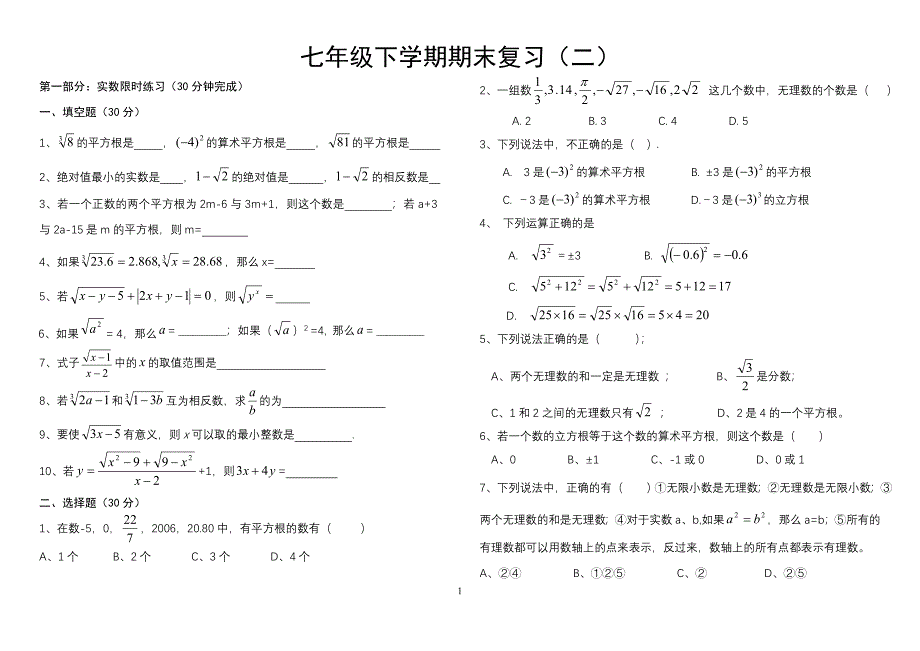 七年级下学期期末复习（二）
第一部分：实数限时练习（30分钟完成）
一、填空题（30分）
1、∛8的平方根是____，(−4)²的算术平方根是____，√81的平方根是____
2、绝对值最小的实数是___，1−√2的绝对值是_____，1−√2的相反数是__
3、若一个正数的两个平方根为2m-6与3m+1，则这个数是________；若a+3
与2a-15是m的平方根，则m=________
4、如果∛23.6=2.868,∛x=28.68，那么x=______
5、若√(x−y−5)+|2x+y−1|=0，则√(yˣ)=_____
6、如果√(a²)=4，那么a=________；如果（√a）²=4，那么a=________
7、式子√(x−1)/(x−2)中的x的取值范围是__________________
8、若∛(2a−1)和∛(1−3b)互为相反数，求a/b的为_________________
9、要使√(3x−5)有意义，则x可以取的最小整数是__________.
10、若y=(√(x²−9)+√(9−x²))/(x−2)+1，则3x+4y=_________
二、选择题（30分）
1、在数-5，0，22/7，2006，20.80中，有平方根的数有（　　）
A、1个　B、2个　C、3个　D、4个
2、一组数1/3,3.14,π/2,−√27,−√16,2√2 这几个数中，无理数的个数是（　　）
A. 2　B. 3　C. 4　D. 5
3、下列说法中，不正确的是（　）.
A. 3是(−3)²的算术平方根　B. ±3是(−3)²的平方根
C. －3是(−3)²的算术平方根　D.－3是(−3)³的立方根
4、 下列运算正确的是
A. √3²=±3　B. √(−0.6)²=−0.6
C. √(5²+12²)=√5²+√12²=5+12=17
D. √(25×16)=√25×√16=5×4=20
5、下列说法正确的是（　　）；
A、两个无理数的和一定是无理数；　B、√3/2是分数；
C、1和2之间的无理数只有√2；　D、2是4的一个平方根。
6、若一个数的立方根等于这个数的算术平方根，则这个数是（　　）
A、0　B、±1　C、-1或0　D、0或1
7、下列说法中，正确的有（　　）①无限小数是无理数；②无理数是无限小数；③
两个无理数的和是无理数；④对于实数a、b,如果a²=b²，那么a=b；⑤所有的
有理数都可以用数轴上的点来表示，反过来，数轴上的所有点都表示有理数。
A、②④　B、①②⑤　C、②　D、②⑤
1